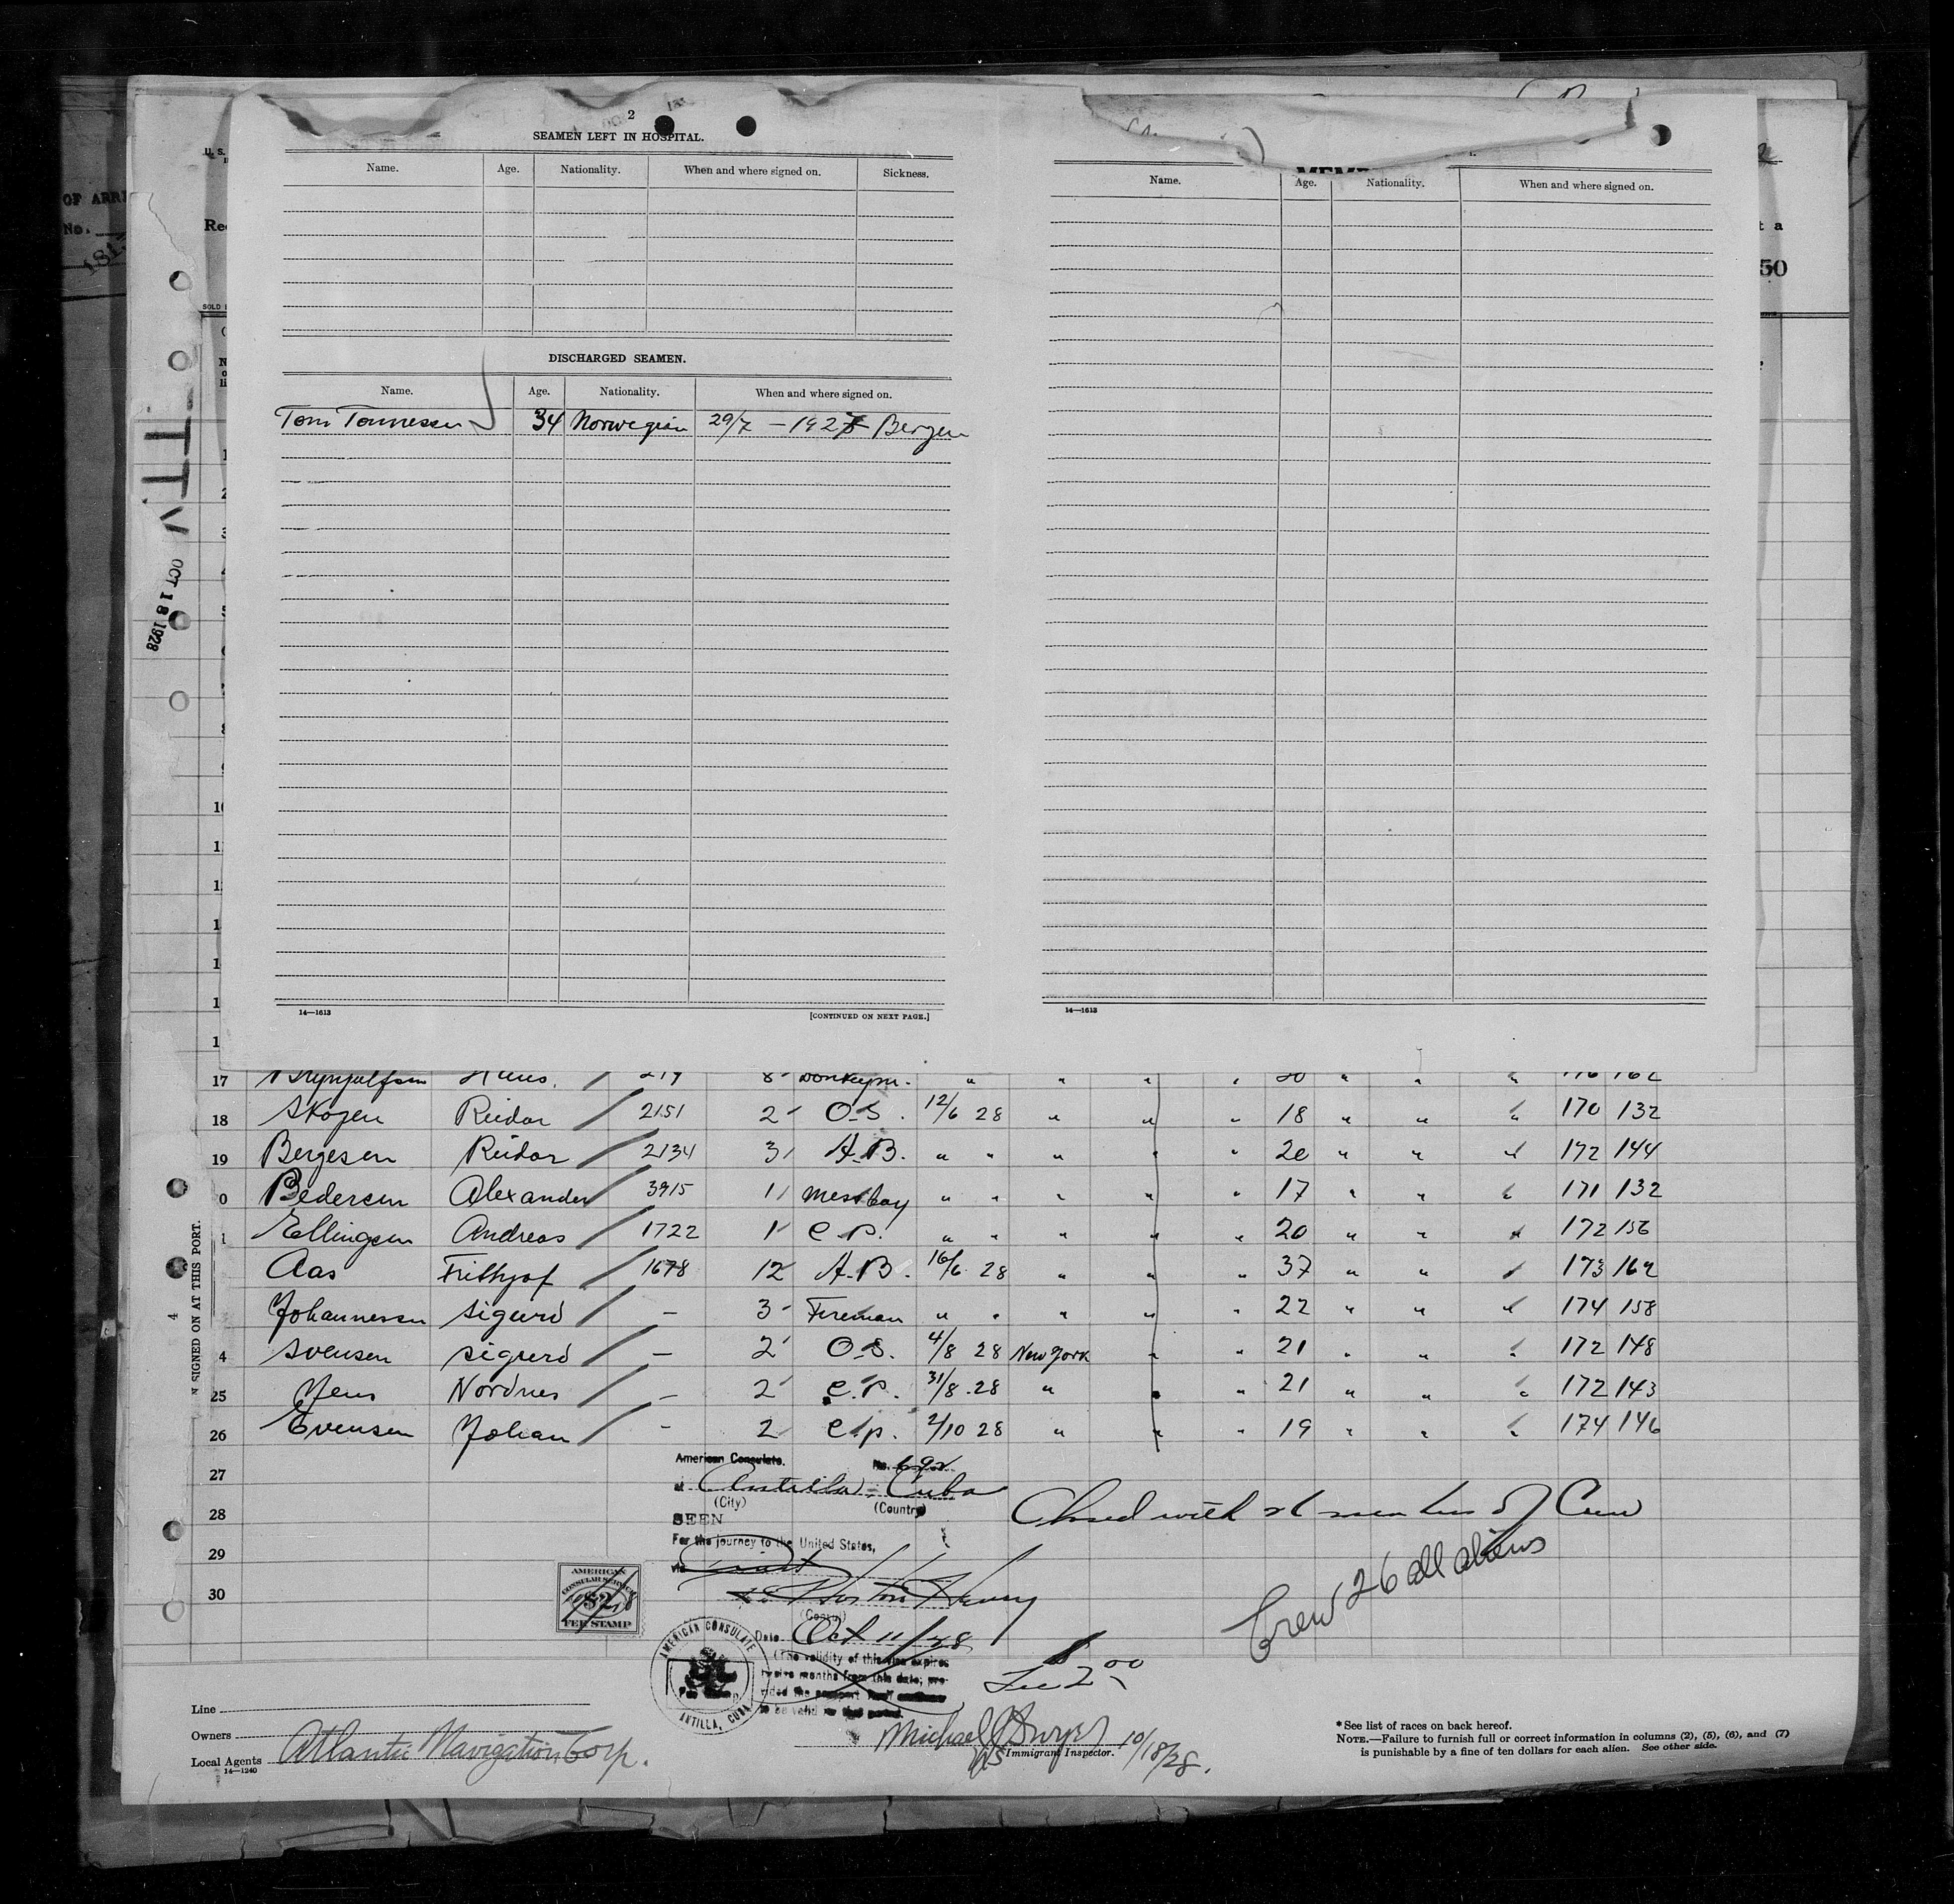 2
SEAMEN LEFT IN HOSPITAL.
Name. Age. Nationality. When and where signed on. Sickness.
DISCHARGED SEAMEN.
Name. Age. Nationality. When and where signed on.
Tom Tonnessen 34 Norwegian 29/7 - 1927 Bergen
14—1613
[CONTINUED ON NEXT PAGE.]
Name. Age. Nationality. When and where signed on.
14—1613
U. S.
OF ARRI
No.
50
t a
OCT 18 1928
N SIGNED ON AT THIS PORT.
4
17 Hans. / 219 8 Donkeym. " " " " " " "
18 Skogen Reidar / 2151 2 O.S. 12/6 28 " " " 18 " " " 170 132
19 Bergesen Reidar / 2134 3 A.B. " " " " " 20 " " " 172 144
0 Pedersen Alexander / 3915 1 messboy " " " " " 17 " " " 171 132
1 Ellingsen Andreas / 1722 1 C.P. " " " " " 20 " " " 172 156
Aas Frithjof / 1678 12 A.B. 16/6 28 " " " 37 " " " 173 162
Johannessen Sigurd / — 3 Fireman " " " " " 22 " " " 174 158
4 Svensen Sigurd / — 2 O.S. 4/8 28 New York " " 21 " " " 172 148
25 Jens Nordnes / — 2 C.P. 31/8 28 " " " 21 " " " 172 143
26 Evensen Johan / - 2 C.P. 2/10 28 " " " 19 " " " 174 146
27
28
29
30
American Consulate. No. 692
at Antilla - Cuba
(City) (Country)
SEEN
For the journey to the United States,
via
(Consul)
Date Oct 11/28
(The validity of this visa expires
twelve months from this date; pro-
vided the passport itself continues
to be valid for that period.
Closed with 26 members of Crew
Crew 26 all aliens
AMERICAN
CONSULAR SERVICE
$2
FEE STAMP
AMERICAN CONSULATE
ANTILLA, CUBA
Fee 2 00
Line
Owners
Local Agents Atlantic Navigation Corp.
14—1240
Michael J Dwyer 10/18/28.
US Immigrant Inspector.
*See list of races on back hereof.
NOTE.—Failure to furnish full or correct information in columns (2), (5), (6), and (7)
is punishable by a fine of ten dollars for each alien. See other side.